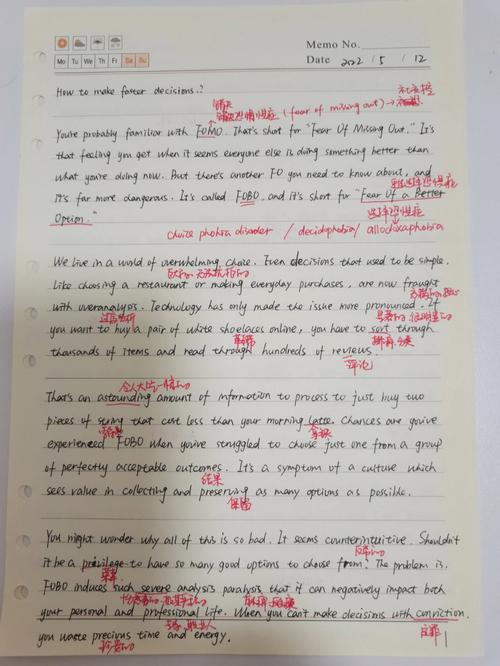 Memo No.
Mo Tu We Th Fr Sa Su
Date 2022 / 5 / 12
How to make faster decisions.?
社交控
错失恐惧症 (fear of missing out) →
You're probably familiar with FOMO. That's short for "Fear Of Missing Out." It's
that feeling you get when it seems everyone else is doing something better than
what you're doing now. But there's another FO you need to know about, and
it's far more dangerous. It's called FOBO, and it's short for "Fear Of a Better
Option."
选择恐惧症
choice phobia disorder / decidophobia / allodoxaphobia
We live in a world of overwhelming choice. Even decisions that used to be simple.
巨大的, 无法抗拒的
Like choosing a restaurant or making everyday purchases, are now fraught
with overanalysis. Technology has only made the issue more pronounced. If
过度分析
you want to buy a pair of white shoelaces online, you have to sort through
鞋带
thousands of items and read through hundreds of reviews.
评论
令人大吃一惊的
That's an astounding amount of information to process to just buy two
pieces of string that cost less than your morning latte. Chances are you've
拿铁
experienced FOBO when you've struggled to choose just one from a group
of perfectly acceptable outcomes. It's a symptom of a culture which
结果
sees value in collecting and preserving as many options as possible.
保留
You might wonder why all of this is so bad. It seems counterintuitive. Shouldn't
it be a privilege to have so many good options to choose from? The problem is,
荣幸
FOBO induces such severe analysis paralysis, that it can negatively impact both
your personal and professional life. When you can't make decisions with conviction,
you waste precious time and energy.
珍贵的
定罪